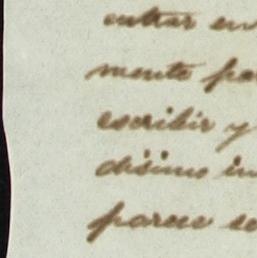 entrar en
mente pa
escribir y
disimo in
parece se